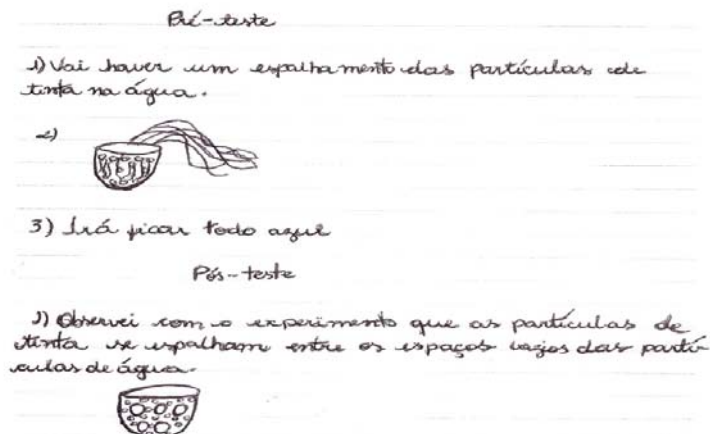 Pré-teste
1) Vai haver um espalhamento das partículas de
tinta na água.
2)
3) Irá ficar todo azul
Pós-teste
1) Observei com o experimento que as partículas de
tinta se espalham entre os espaços vazios das partí
culas de água.